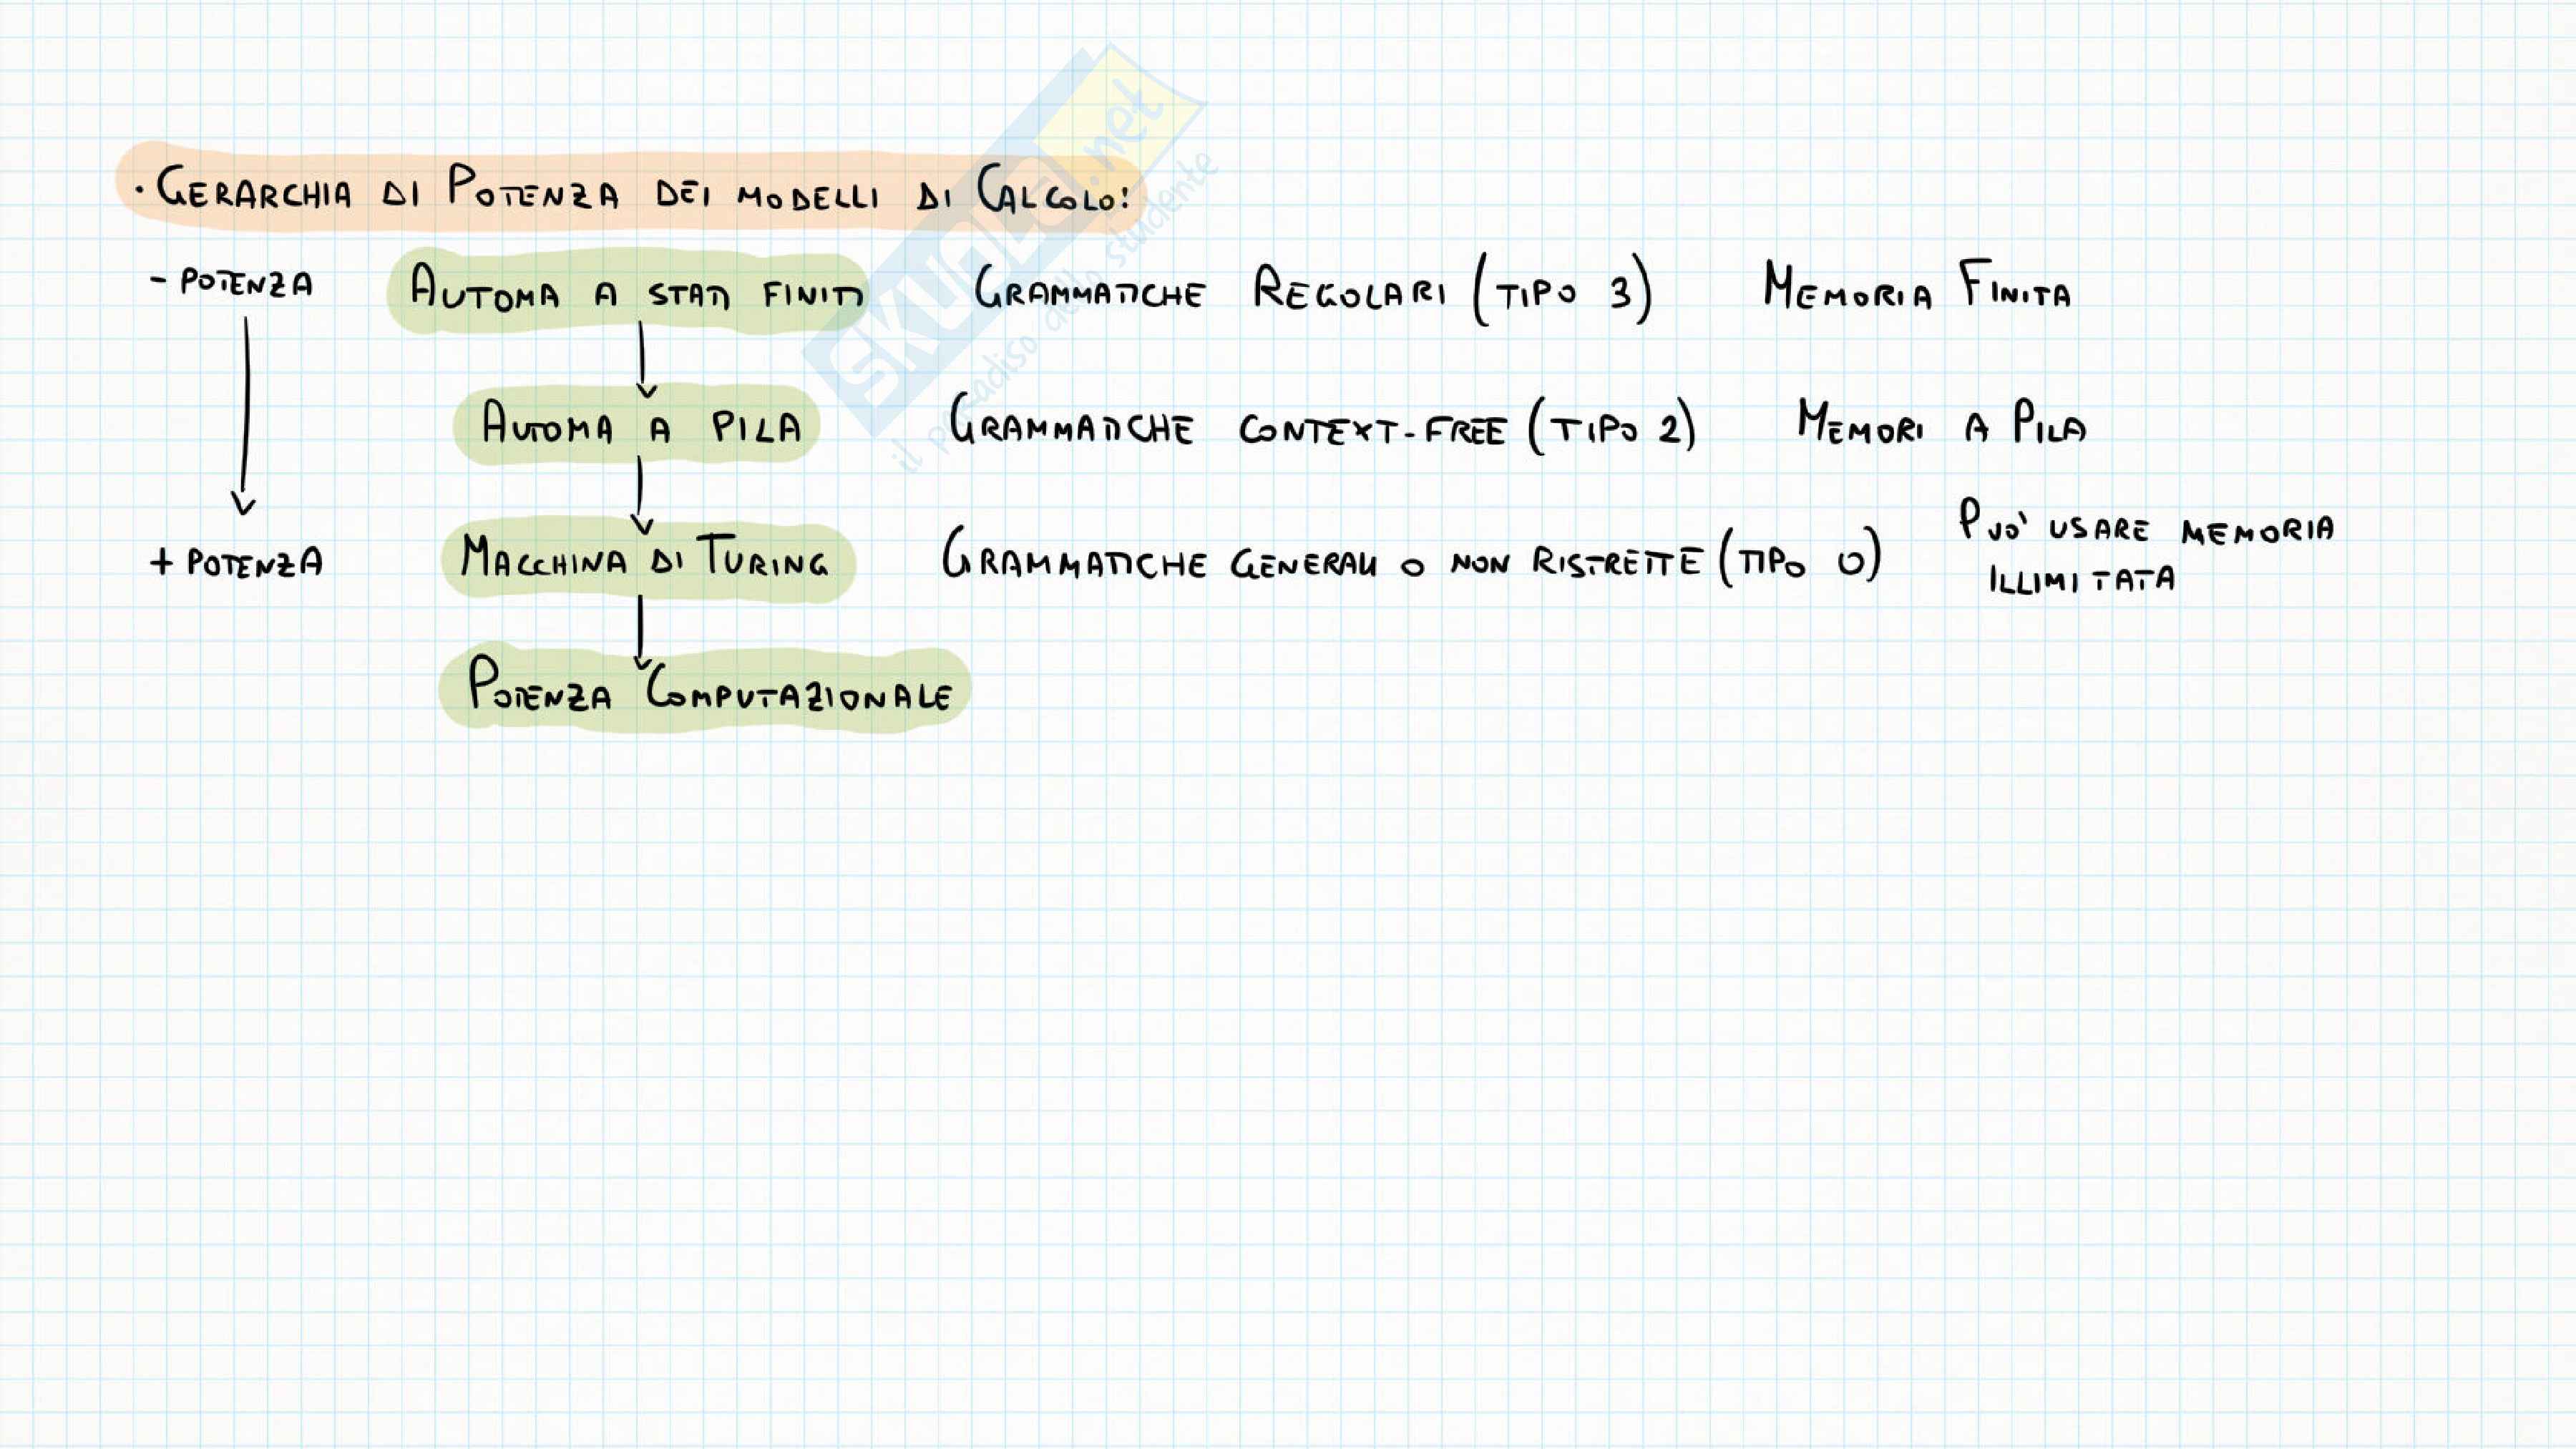 · GERARCHIA DI POTENZA DEI MODELLI DI CALCOLO:
- POTENZA AUTOMA A STATI FINITI GRAMMATICHE REGOLARI (TIPO 3) MEMORIA FINITA
AUTOMA A PILA GRAMMATICHE CONTEXT-FREE (TIPO 2) MEMORI A PILA
+ POTENZA MACCHINA DI TURING GRAMMATICHE GENERALI O NON RISTRETTE (TIPO 0) PUO' USARE MEMORIA
ILLIMITATA
POTENZA COMPUTAZIONALE
SKUOLA.net
il paradiso dello studente